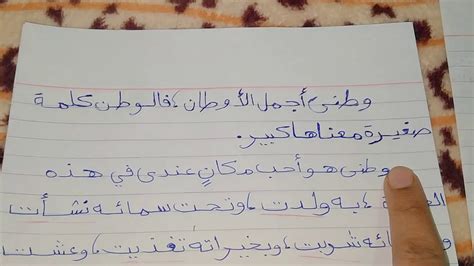 وطنى أجمل الأوطان، فالوطن كلمة
صغيرة معناها كبير.
وطنى هو أحب مكانٍ عندى في هذه
به ولدت، وتحت سمائه نشأت
شربت، وبخيراته تغذيت، وعشت